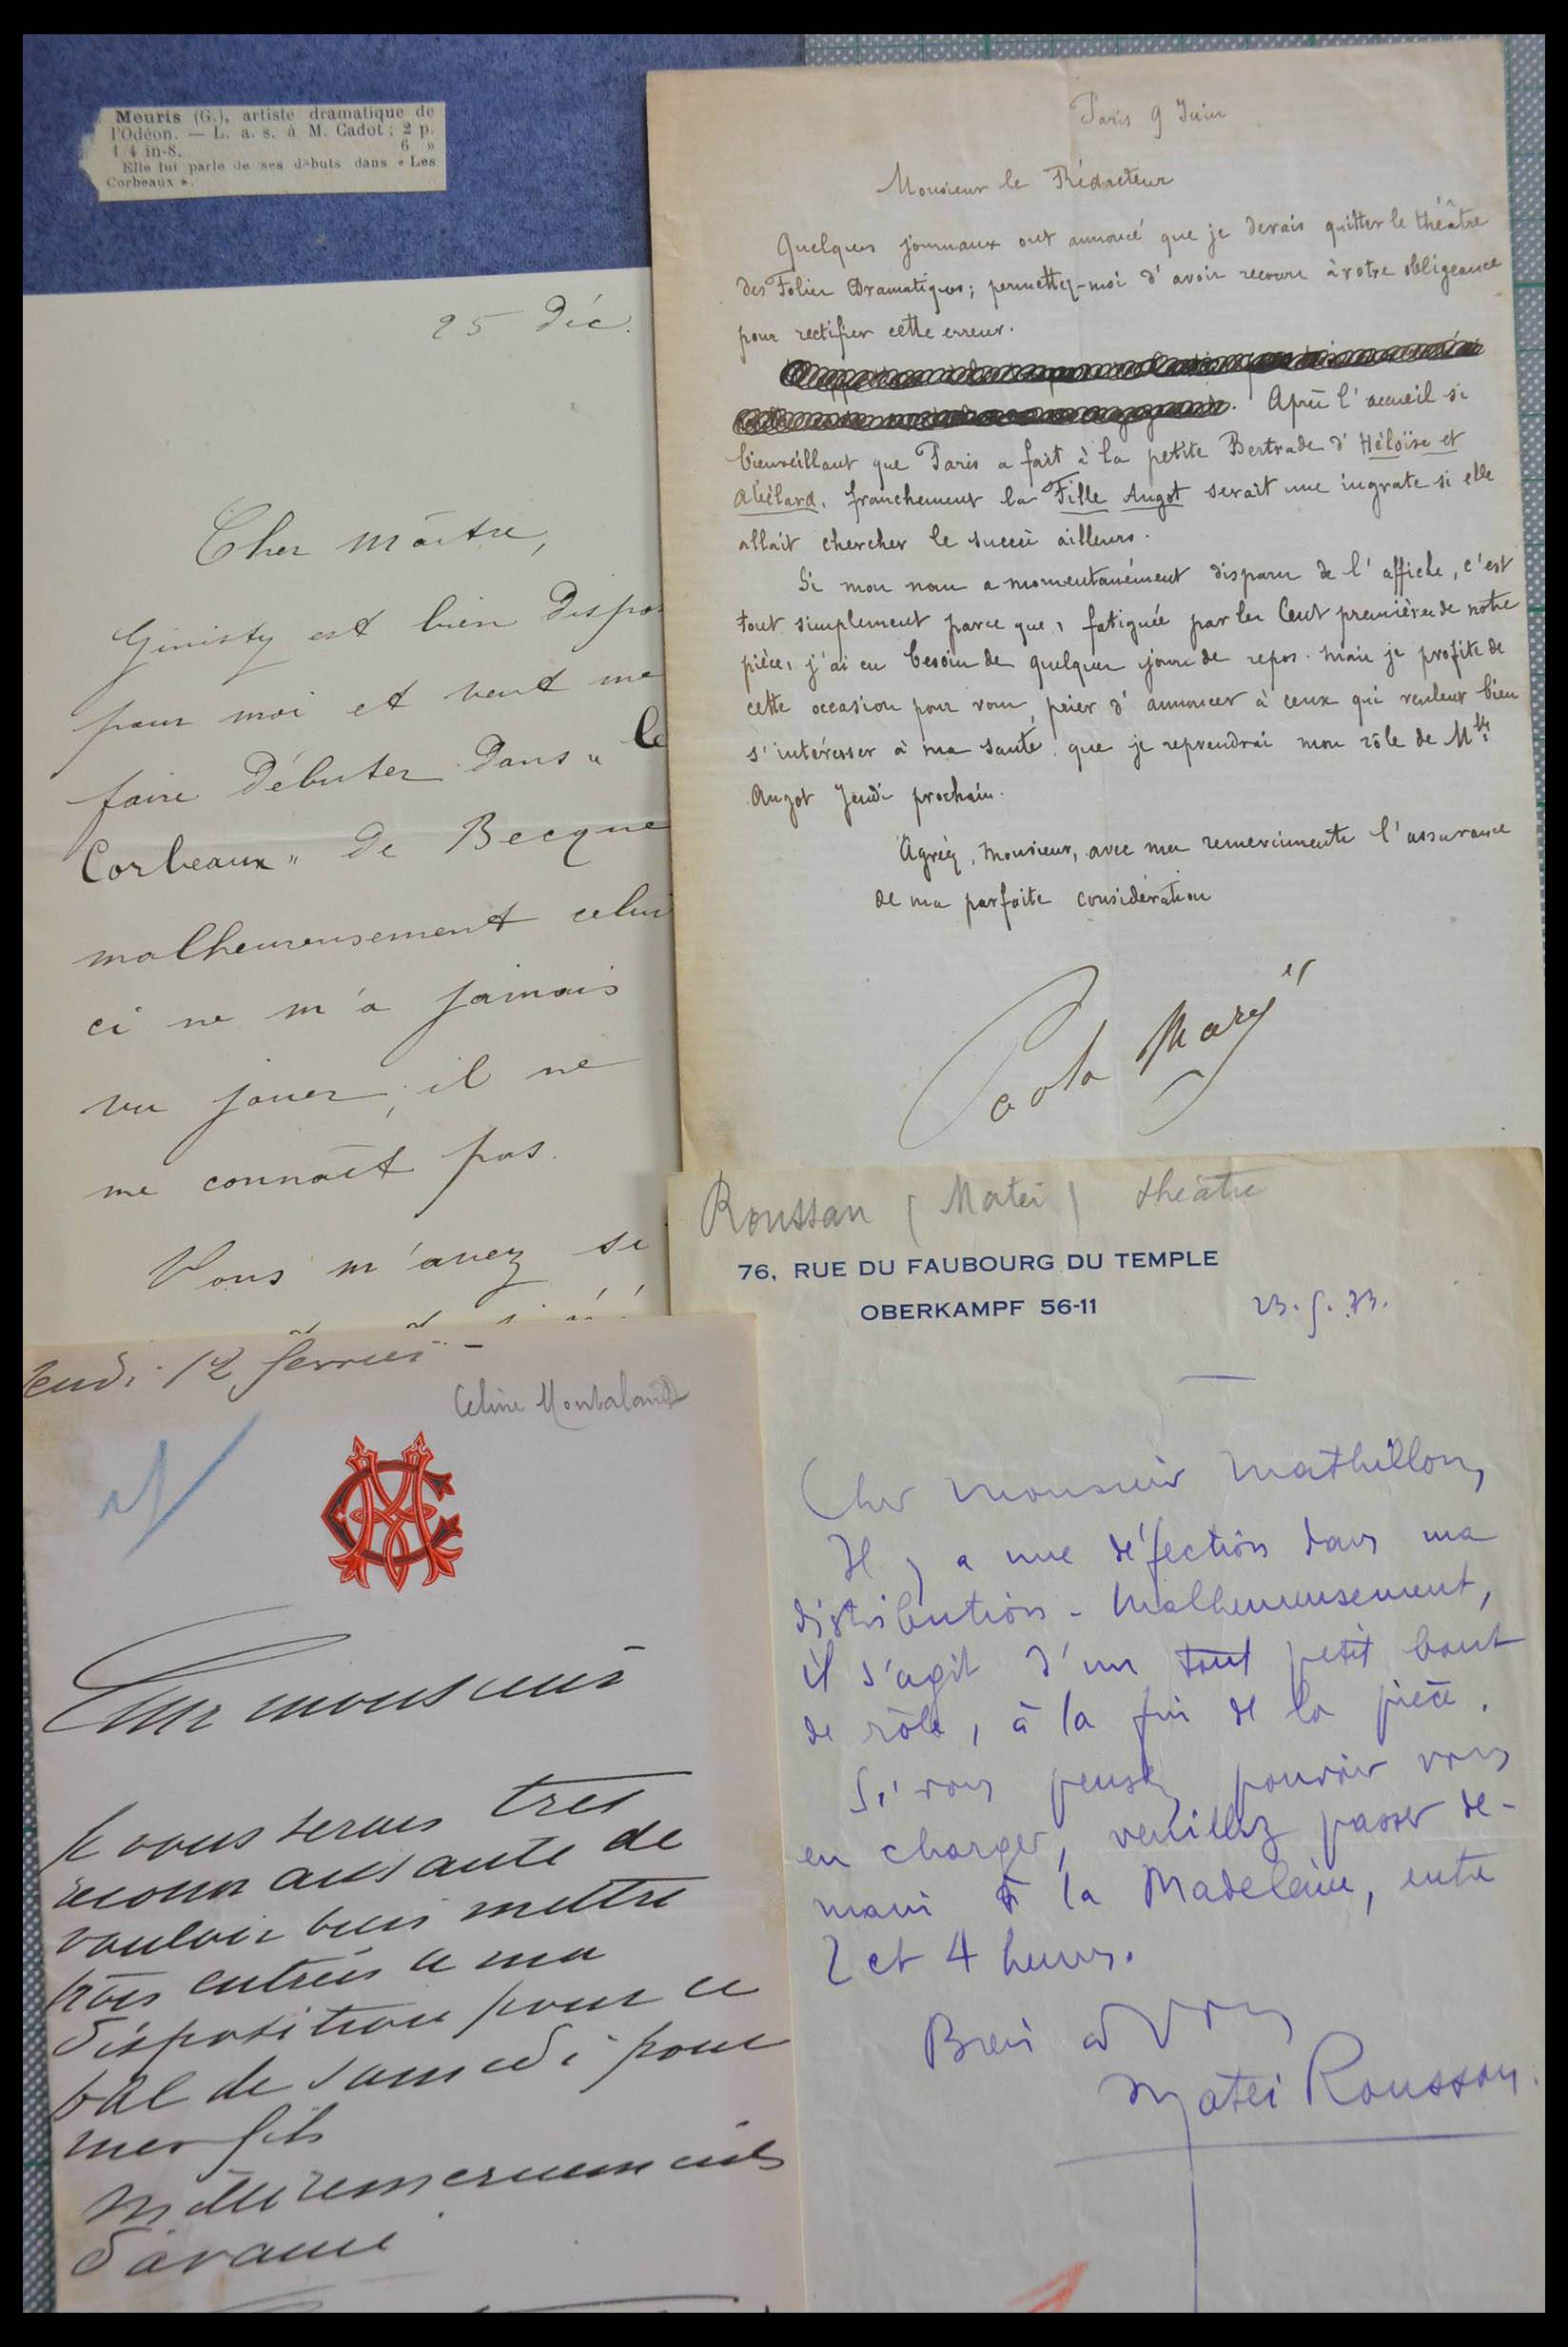 Meuris (G.), artiste dramatique de
l'Odéon. — L. a. s. à M. Cadot ; 2 p.
1/4 in-8. 6 »
Elle lui parle de ses débuts dans « Les
Corbeaux ».
25 Déc.
Cher Maître,
Ginisty est bien dispo
pour moi et veut me
faire débuter dans " le
Corbeaux " de Becque
malheureusement celui
ci ne m'a jamais
vu jouer, il ne
me connaît pas.
Vous m'avez si
Paris 9 Juin
Monsieur le Rédacteur
Quelques journaux ont annoncé que je devais quitter le théâtre
des Folies Dramatiques; permettez-moi d'avoir recours à votre obligeance
pour rectifier cette erreur.
Après l'accueil si
bienveillant que Paris a fait à la petite Bertrade d'Héloïse et
Abélard, franchement la Fille Angot serait une ingrate si elle
allait chercher le succès ailleurs.
Si mon nom a momentanément disparu de l'affiche, c'est
tout simplement parce que, fatiguée par les Cent premières de notre
pièce, j'ai eu besoin de quelques jours de repos. Mais je profite de
cette occasion pour vous prier d'annoncer à ceux qui veulent bien
s'intéresser à ma santé que je reprendrai mon rôle de Mlle
Angot Jeudi prochain.
Agréez, Monsieur, avec mes remerciments l'assurance
de ma parfaite considération
Paola Marié
Roussan (Matei) théâtre
76, RUE DU FAUBOURG DU TEMPLE
OBERKAMPF 56-11
23.5.33.
Cher Monsieur Mathillon,
Il y a une défection dans ma
distribution - Malheureusement,
il s'agit d'un tout petit bout
de rôle, à la fin de la pièce.
Si vous pensez pouvoir vous
en charger, veuillez passer de-
main à la Madeleine, entre
2 et 4 heures.
Bien à vous
Matei Roussou.
Jeudi 12 fevrier -
Celine Montaland
CM
Cher monsieur
je vous serais tres
reconnaissante de
vouloir bien mettre
trois entrées a ma
disposition pour ce
bal de samedi pour
mes fils
Mille remerciements
d'avance